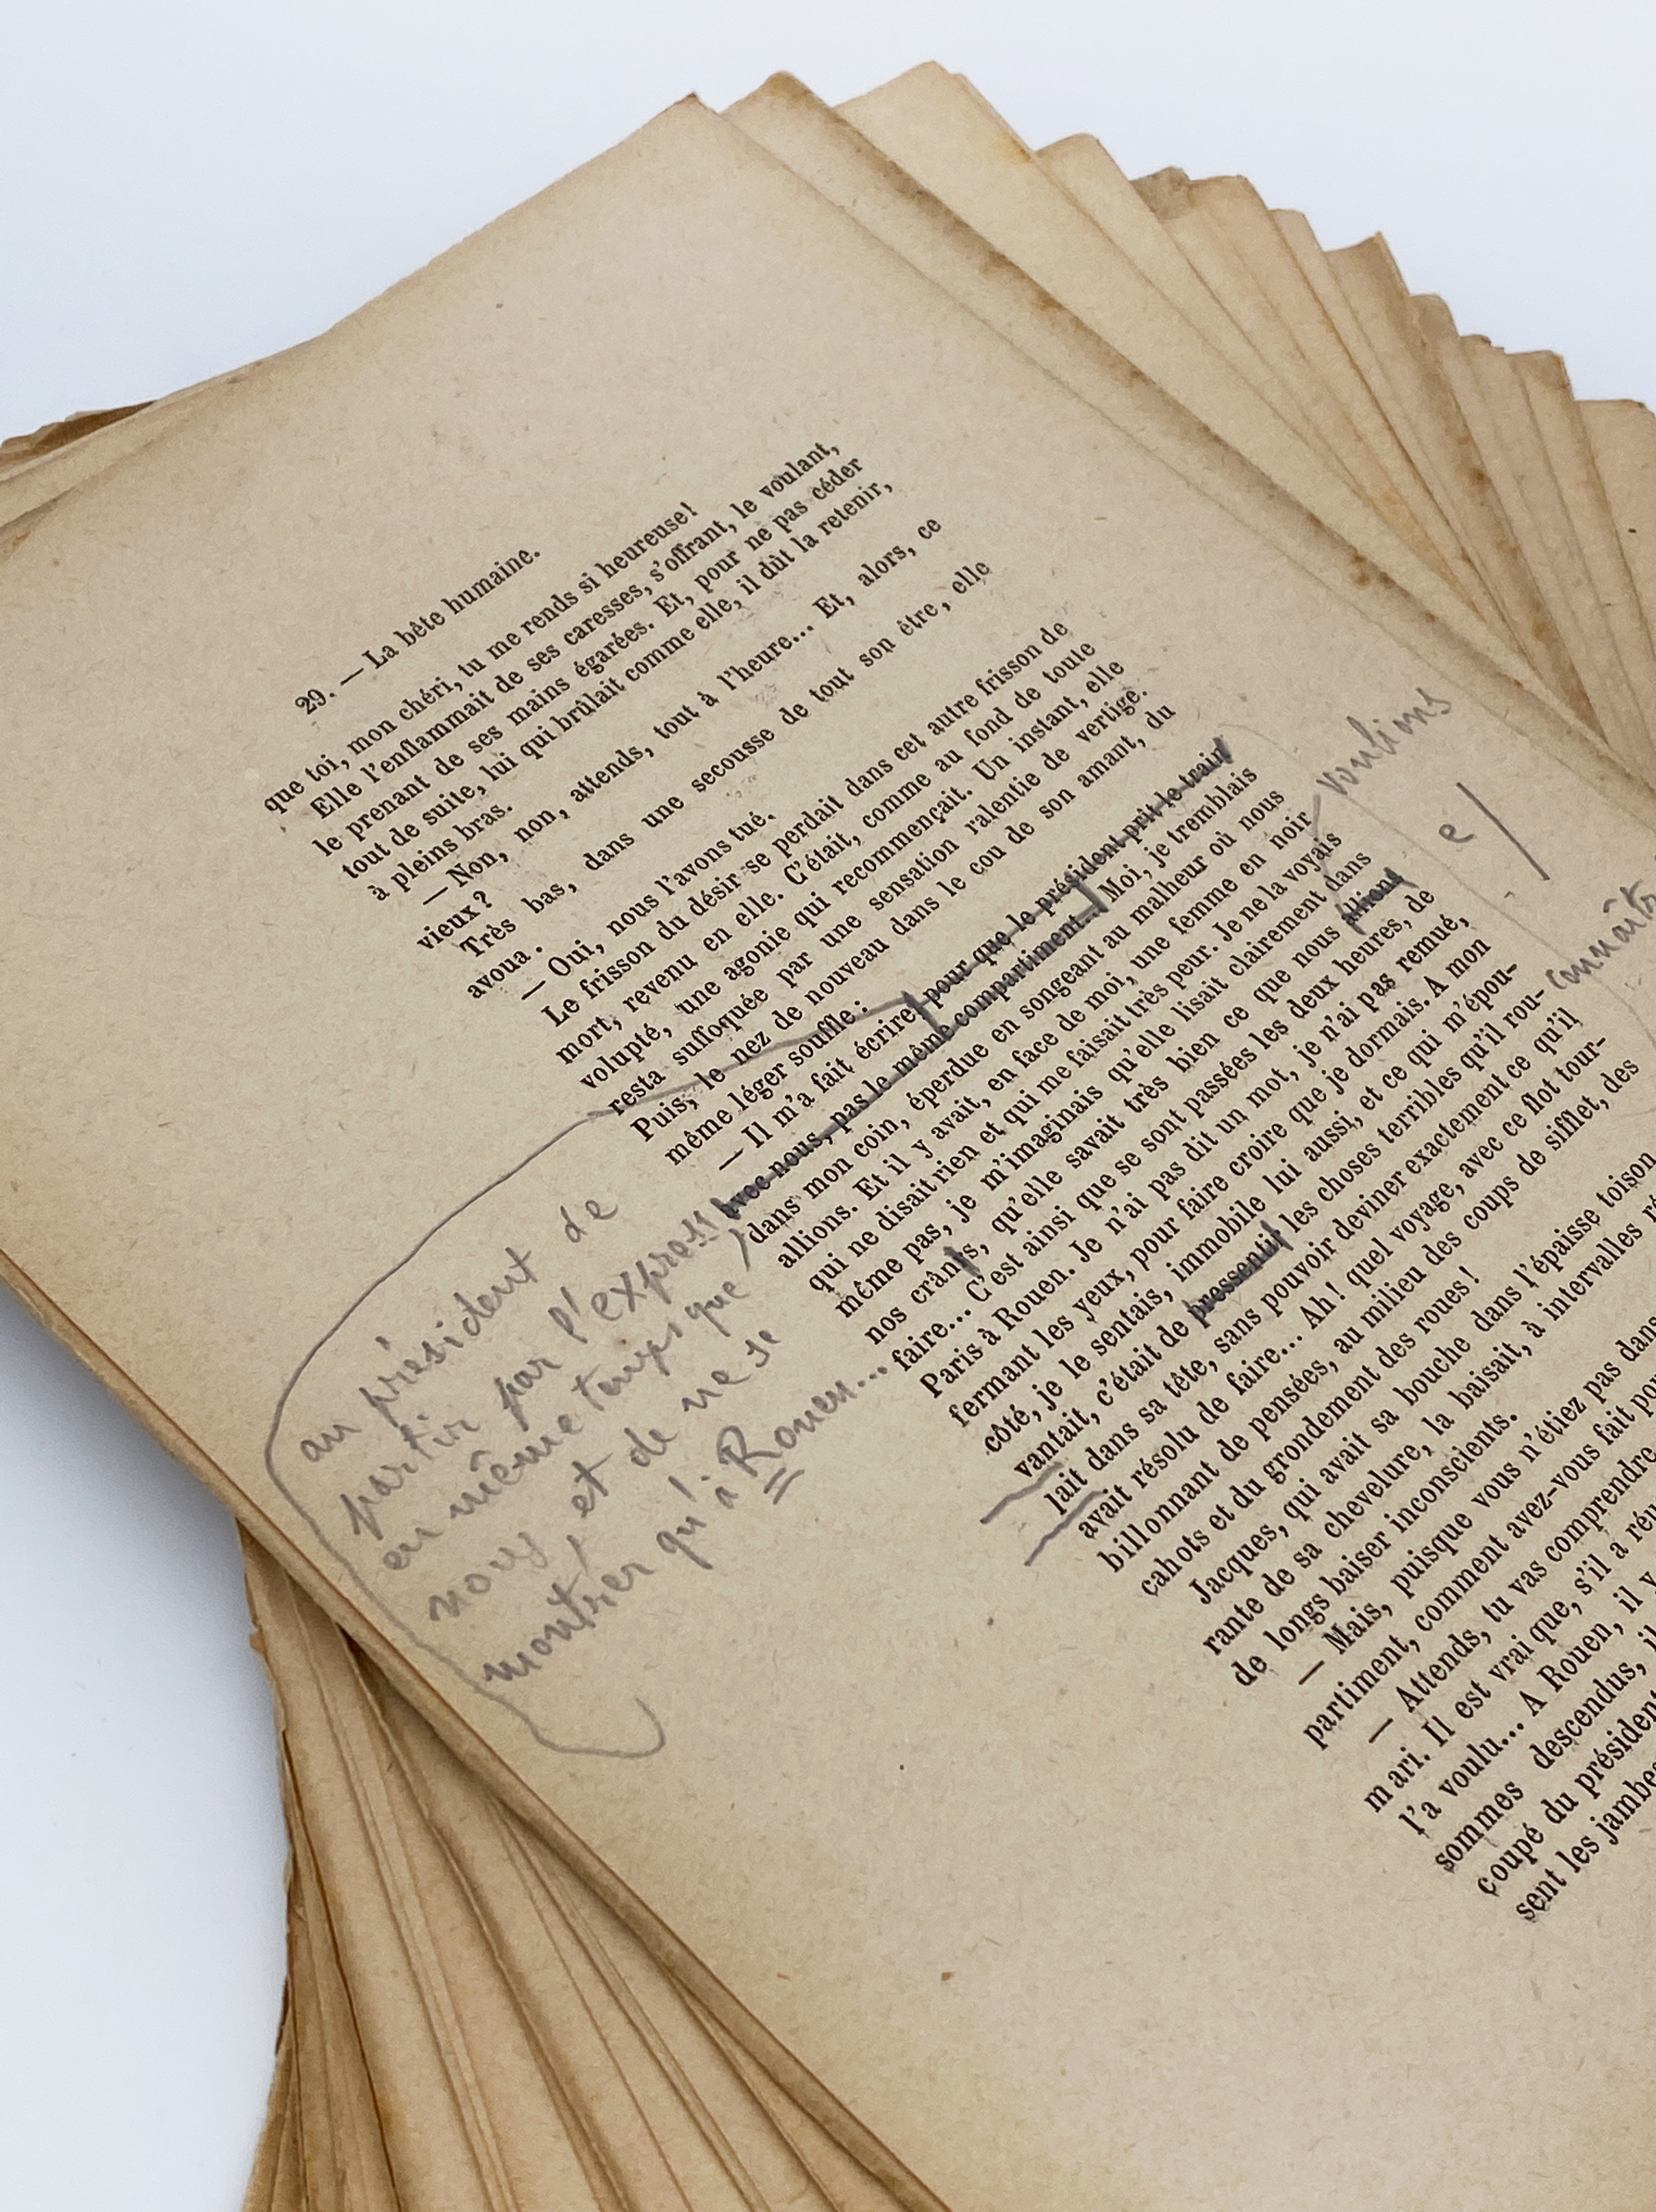 29. — La bête humaine.
que toi, mon chéri, tu me rends si heureuse!
Elle l'enflammait de ses caresses, s'offrant, le voulant,
le prenant de ses mains égarées. Et, pour ne pas céder
tout de suite, lui qui brûlait comme elle, il dût la retenir,
à pleins bras.
— Non, non, attends, tout à l'heure... Et, alors, ce
vieux?
Très bas, dans une secousse de tout son être, elle
avoua.
— Oui, nous l'avons tué.
Le frisson du désir se perdait dans cet autre frisson de
mort, revenu en elle. C'était, comme au fond de toute
volupté, une agonie qui recommençait. Un instant, elle
resta suffoquée par une sensation ralentie de vertige.
Puis, le nez de nouveau dans le cou de son amant, du
même léger souffle:
— Il m'a fait écrire pour que le président prît le train
avec nous, pas le même compartiment... Moi, je tremblais
dans mon coin, éperdue en songeant au malheur où nous
allions. Et il y avait, en face de moi, une femme en noir
qui ne disait rien et qui me faisait très peur. Je ne la voyais
même pas, je m'imaginais qu'elle lisait clairement dans
nos crânes, qu'elle savait très bien ce que nous allions
faire... C'est ainsi que se sont passées les deux heures, de
Paris à Rouen. Je n'ai pas dit un mot, je n'ai pas remué,
fermant les yeux, pour faire croire que je dormais. A mon
côté, je le sentais, immobile lui aussi, et ce qui m'épou-
vantait, c'était de pressentir les choses terribles qu'il rou-
lait dans sa tête, sans pouvoir deviner exactement ce qu'il
avait résolu de faire... Ah! quel voyage, avec ce flot tour-
billonnant de pensées, au milieu des coups de sifflet, des
cahots et du grondement des roues!
Jacques, qui avait sa bouche dans l'épaisse toison
rante de sa chevelure, la baisait, à intervalles ré
de longs baiser inconscients.
— Mais, puisque vous n'étiez pas dans
partiment, comment avez-vous fait pou
— Attends, tu vas comprendre
mari. Il est vrai que, s'il a réu
l'a voulu... A Rouen, il y
sommes descendus, il
coupé du président
sent les jambes
au président de
partir par l'express
en même temps que
nous, et de ne se
montrer qu'à Rouen...
voulions
e/
connaître